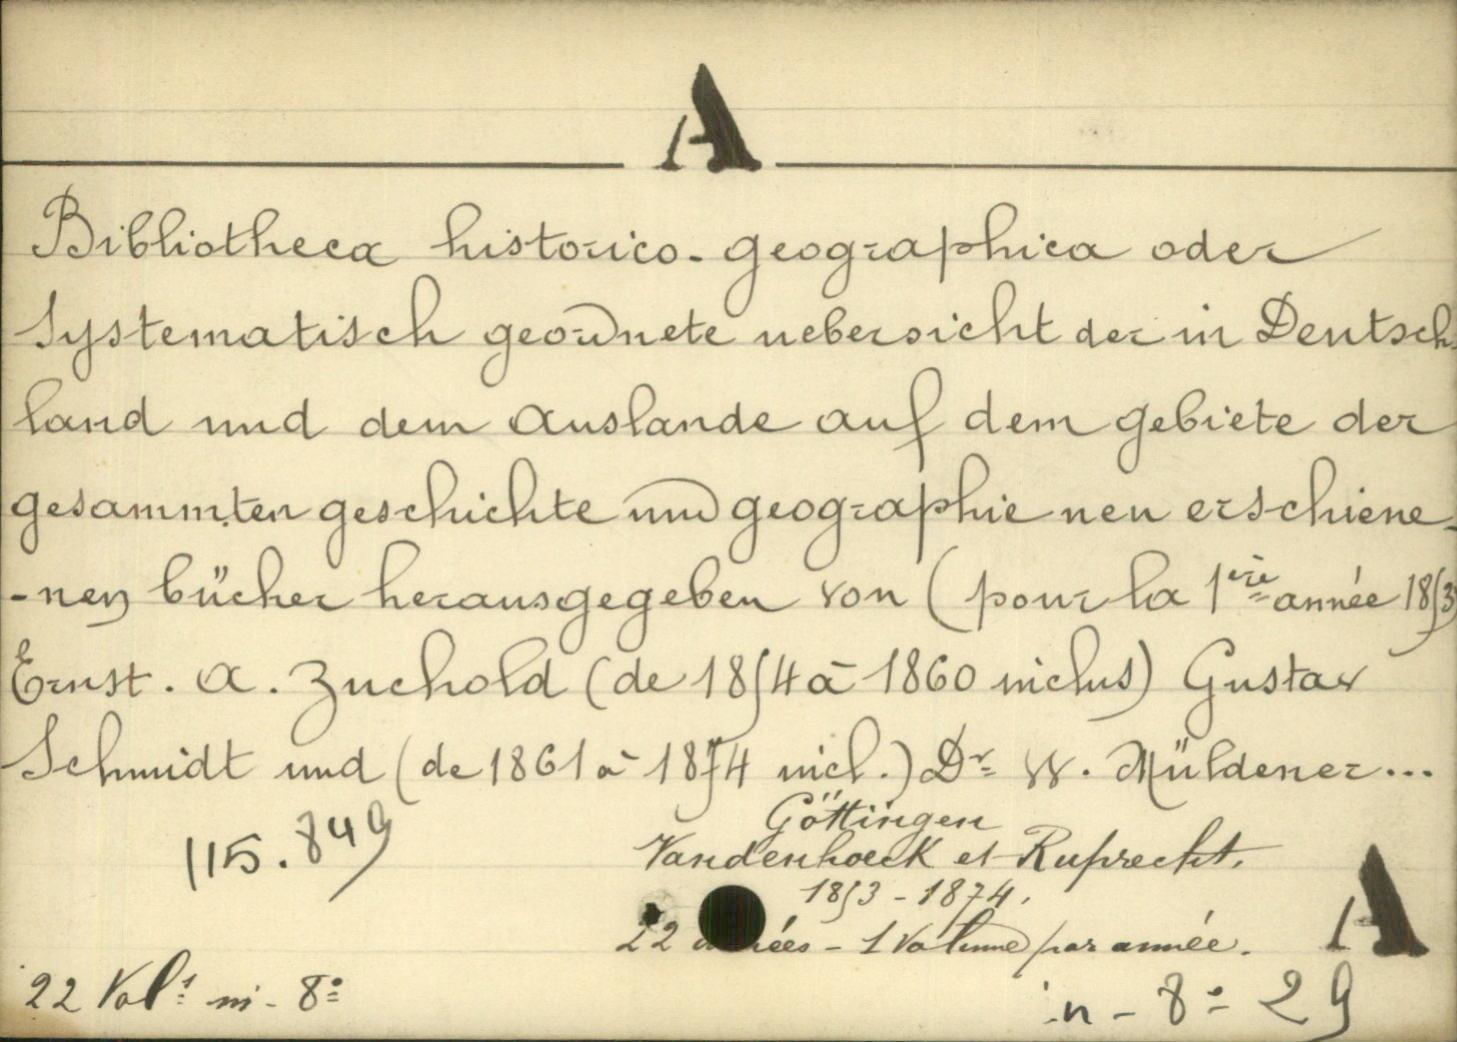 A
Bibliotheca historico-geographica oder
Systematisch geordnete uebersicht der in Deutsch-
land und dem Auslande auf dem gebiete der
gesammten geschichte und geographie neu erschiene-
-nen bücher herausgegeben von (pour la 1ère année 1853)
Ernst. A. Zuchold (de 1854 à 1860 inclus) Gustav
Schmidt und (de 1861 à 1874 incl.) Dr W. Müldener...
115.849
Göttingen
Vandenhoeck et Ruprecht.
1853-1874.
22 années - 1 volume par année.
A
22 Vol. in-8°
in-8° 29